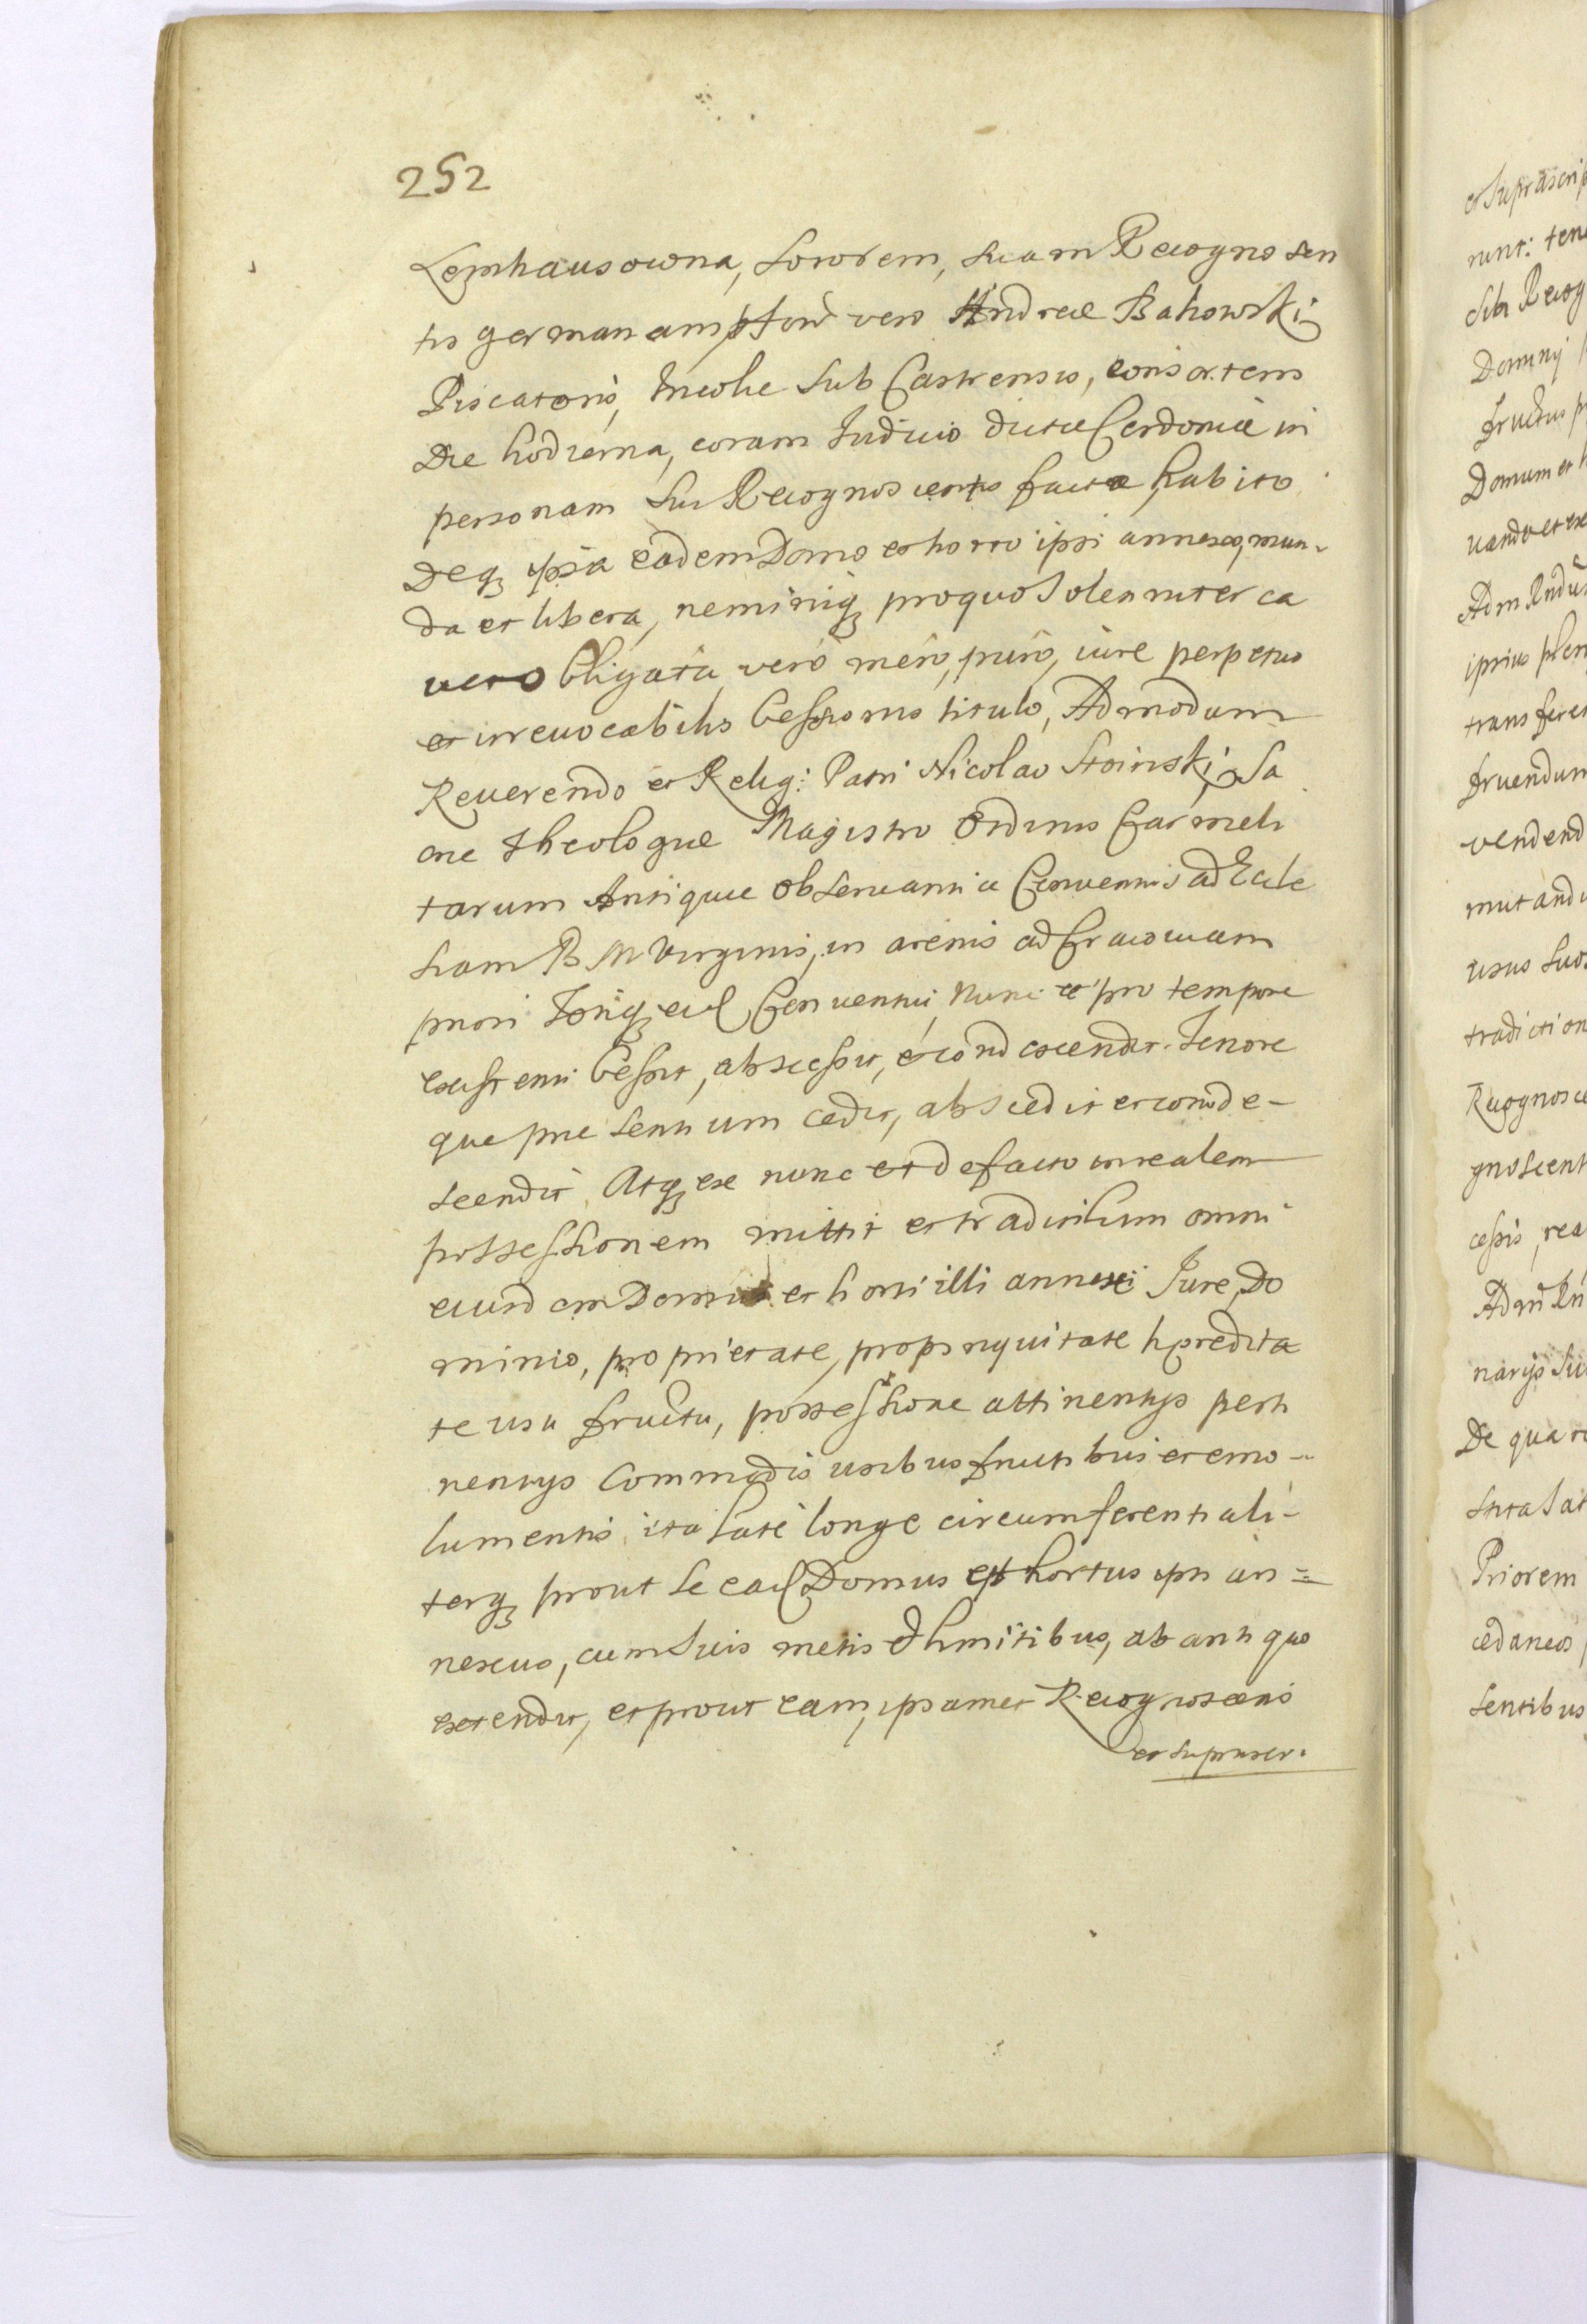 252
Lemhausowna, Sororem, Suam Recognoscen
tis germanam, pſtim vero Andreæ Bahowski
Piscatoris, Incolæ Sub Castrensis, consortem
Die hodierna, coram Iudicio dictæ Cerdoniæ in
personam Sui Recognoscentis facta, habito
Deq ipsa eadem Domo et horto ipsi annexo, mun-
da et libera, neminiq pro quo Solea inter ca
vero Obligata, verò merò, purò, iure perpetuo
et irreuocabilis Cessionis titulo, Admodum
Reuerendo et Relig: Patri Nicolao Stoinski Sa
cræ Theologiæ Magistro Ordinis Carmeli
tarum Antiquæ obseruantiæ Conuentus ad Eccle
siam B M Virginis, in arenis ad Cracouiam
priori Totiq eid Conuentui, nunc et pro tempore
existenti Cessit, abscessit, et condescendit. Tenore
que præsentium cedit, abscedit et conde-
scendit, Atq ex nunc et de facto in realem
possessionem mittit et tradit cum omni
eiusdem Domus et horti illi annexi Iure, Do
minio, proprietate, propinquitate hæredita
te usu fructu, possessione attinentijs perti
nentijs Commodis usibus fructibus et emo-
lumentis, ita latè longe circumferentiali-
terq prout Se ead Domus et hortus ipsi an=
nexus, cum Suis metis et limitibus, ab antiquo
extendit, et prout eam, ipsamet Recognoscens
et suprascr.
et suprascrip
runt: tene
sibi Recog
Dominij
fructus
Domum et h
uando et ex
Adm Rndu
ipsius plen
transferen
fruendum
vendend
mutandi
usus suos
tradiction
Recognosce
gnoscent
cessis, rea
Adm Rn
narijs Suc
De qua re
Priorem
cedaneos,
Sentibus